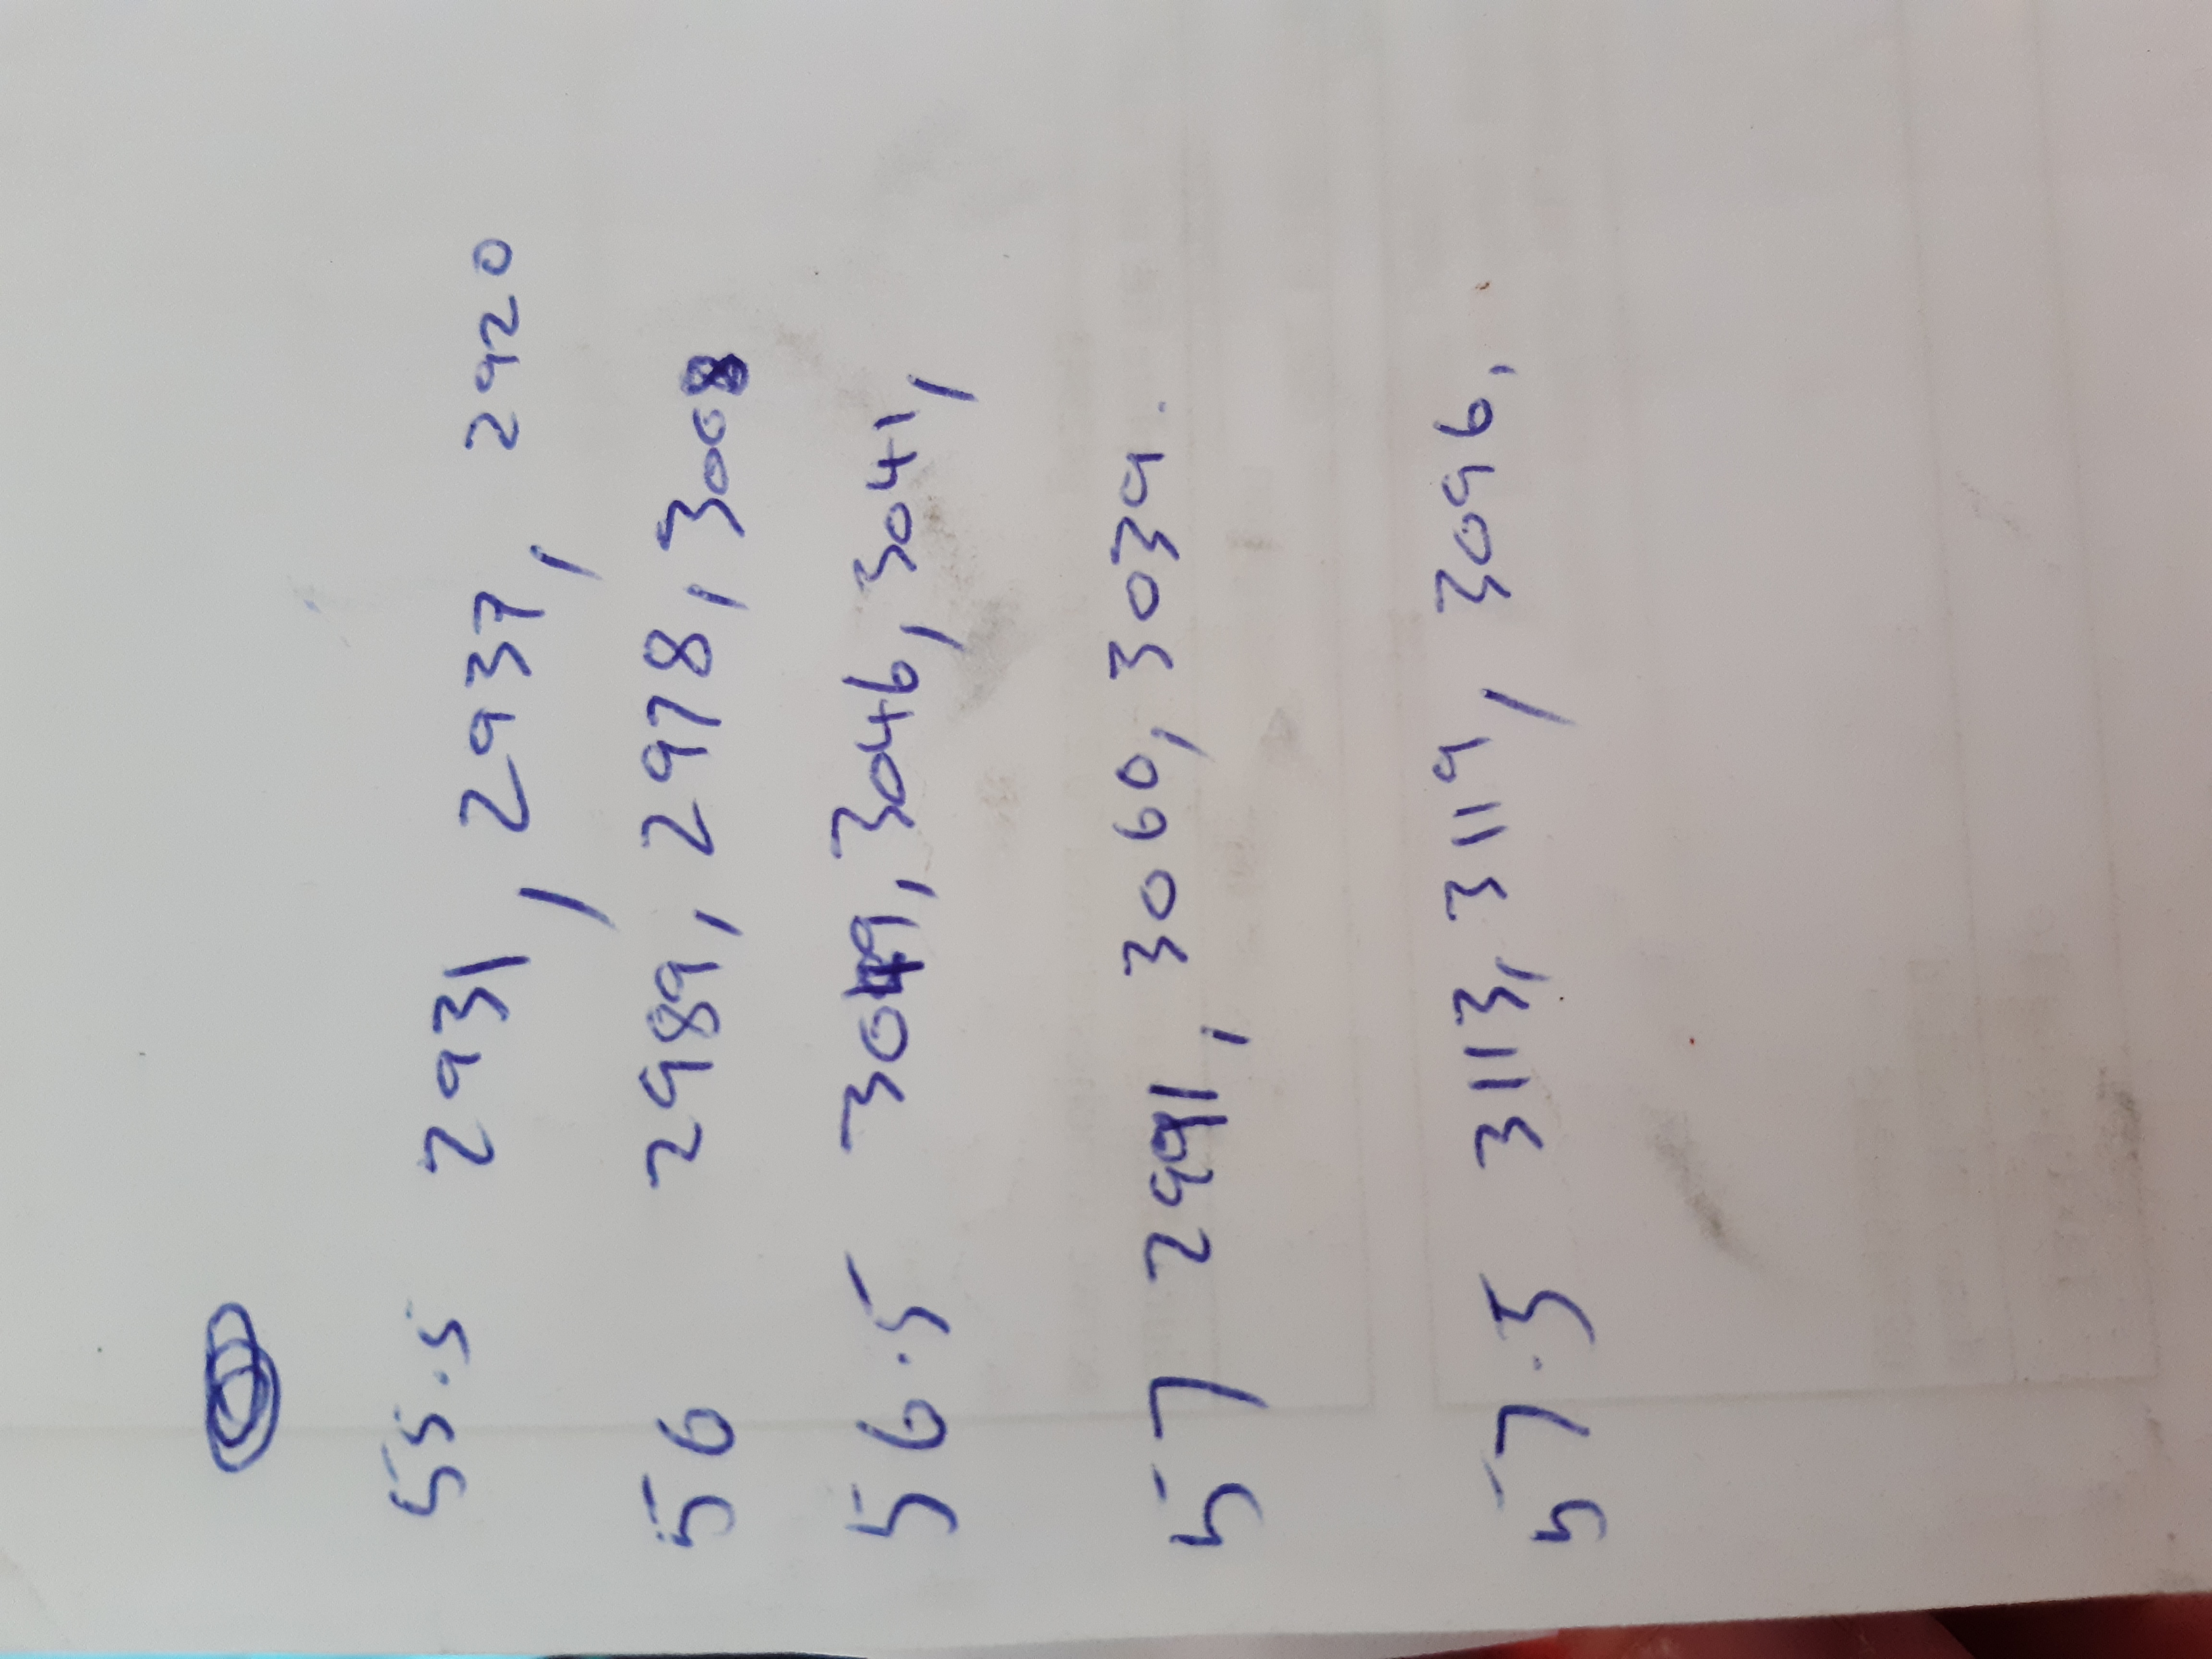 55.5 2931, 2937, 2920
56 2989, 2978, 3008
56.5 3049, 3046, 3041,
57 2991, 3060, 3039.
57.5 3113, 3119, 3096.